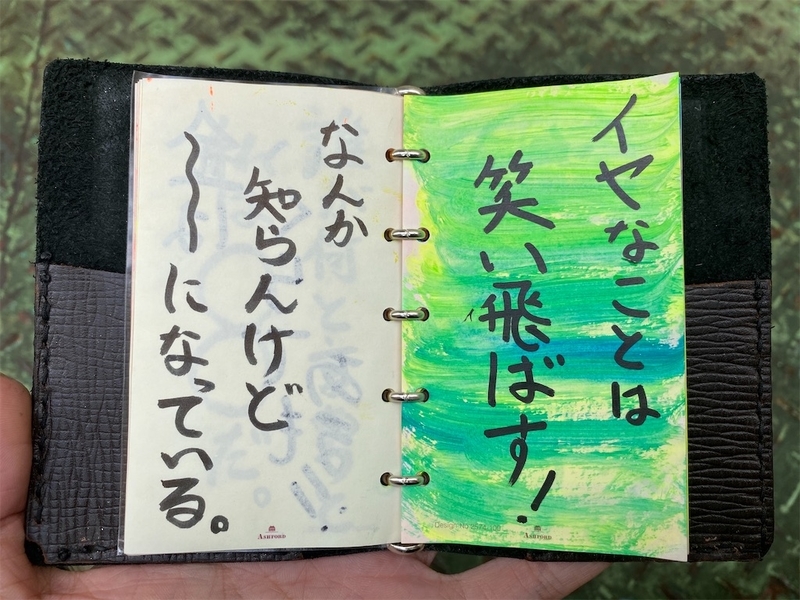 イヤなことは
笑い飛ばす!
なんか
知らんけど
〜〜になっている。
ASHFORD
ASHFORD